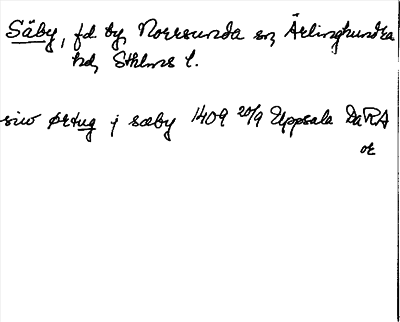 Säby, fd by, Norrsunda sn, Ärlinghundra
hd, Sthlms l.
siw ørtug j sæby 1409 20/9 Uppsala DaRA
or